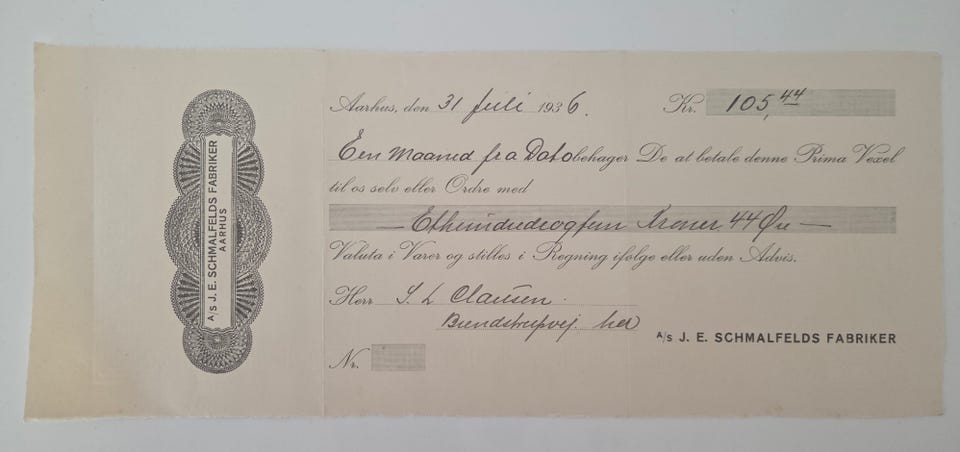 A/S J. E. SCHMALFELDS FABRIKER
AARHUS
Aarhus, den 31 Juli 1936.
Kr. 105,44
Een Maaned fra Dato behager De at betale denne Prima Vexel
til os selv eller Ordre med
— Ethundredeogfem Kroner 44 Øre —
Valuta i Varer og stilles i Regning ifølge eller uden Advis.
Herr S. L Clausen.
Brendstrupvej. her
A/S J. E. SCHMALFELDS FABRIKER
Nr.